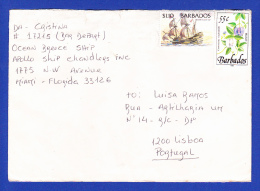 DA- Cristina
Ocean Breeze Ship
Apollo Ship Chandlers Inc
1775 N.W Avenue
Miami - Florida 33126
$1.10 BARBADOS
55c
Barbados
TO: Luisa Ramos
Rua - Agtelhagem um
Nº 14 - R/C - Dº
1200 Lisboa
Portugal